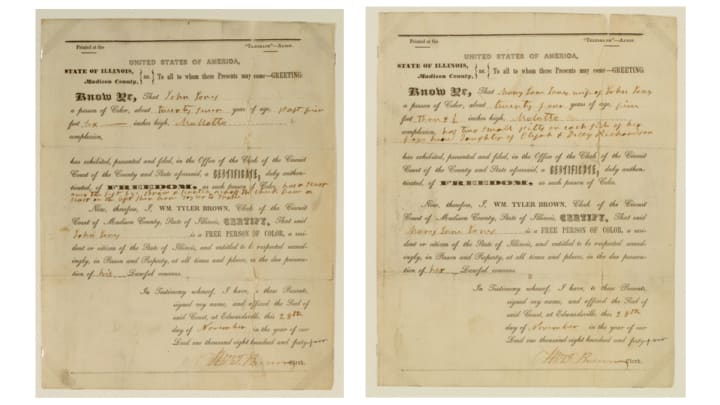 Printed at the "Telegraph"—Alton.
UNITED STATES OF AMERICA,
STATE OF ILLINOIS, Madison County, } ss. { To all to whom these Presents may come—GREETING
Know Ye, That John Jones
a person of Color, about twenty seven years of age, feet five
feet inches high, Mullatto
complexion,
has exhibited, presented and filed, in the Office of the Clerk of the Circuit
Court of the County and State aforesaid, a CERTIFICATE, duly authen-
ticated, of FREEDOM, as such person of Color. has a Scar
over the left
Now, therefore, I, WM. TYLER BROWN, Clerk of the Circuit
Court of Madison County, State of Illinois, CERTIFY, That said
John Jones is a FREE PERSON OF COLOR, a resi-
dent or citizen of the State of Illinois, and entitled to be respected accord-
ingly, in Person and Property, at all times and places, in the due prosecu-
tion of his Lawful concerns.
In Testimony whereof, I have, to these Presents,
signed my name, and affixed the Seal of
said Court, at Edwardsville, this 28th
day of November in the year of our
Lord one thousand eight hundred and forty four
Clerk.
Printed at the "Telegraph"—Alton.
UNITED STATES OF AMERICA,
STATE OF ILLINOIS, Madison County, } ss. { To all to whom these Presents may come—GREETING
Know Ye, That Mary Jane Jones wife of John Jones
a person of Color, about twenty four years of age, five
feet inches high, Mulatto
complexion, has two small pitts on each side of her
face daughter of Elijah & Diza Richardson
has exhibited, presented and filed, in the Office of the Clerk of the Circuit
Court of the County and State aforesaid, a CERTIFICATE, duly authen-
ticated, of FREEDOM, as such person of Color.
Now, therefore, I, WM. TYLER BROWN, Clerk of the Circuit
Court of Madison County, State of Illinois, CERTIFY, That said
Mary Jane Jones is a FREE PERSON OF COLOR, a resi-
dent or citizen of the State of Illinois, and entitled to be respected accord-
ingly, in Person and Property, at all times and places, in the due prosecu-
tion of her Lawful concerns.
In Testimony whereof, I have, to these Presents,
signed my name, and affixed the Seal of
said Court, at Edwardsville, this 28th
day of November in the year of our
Lord one thousand eight hundred and forty four
Clerk.